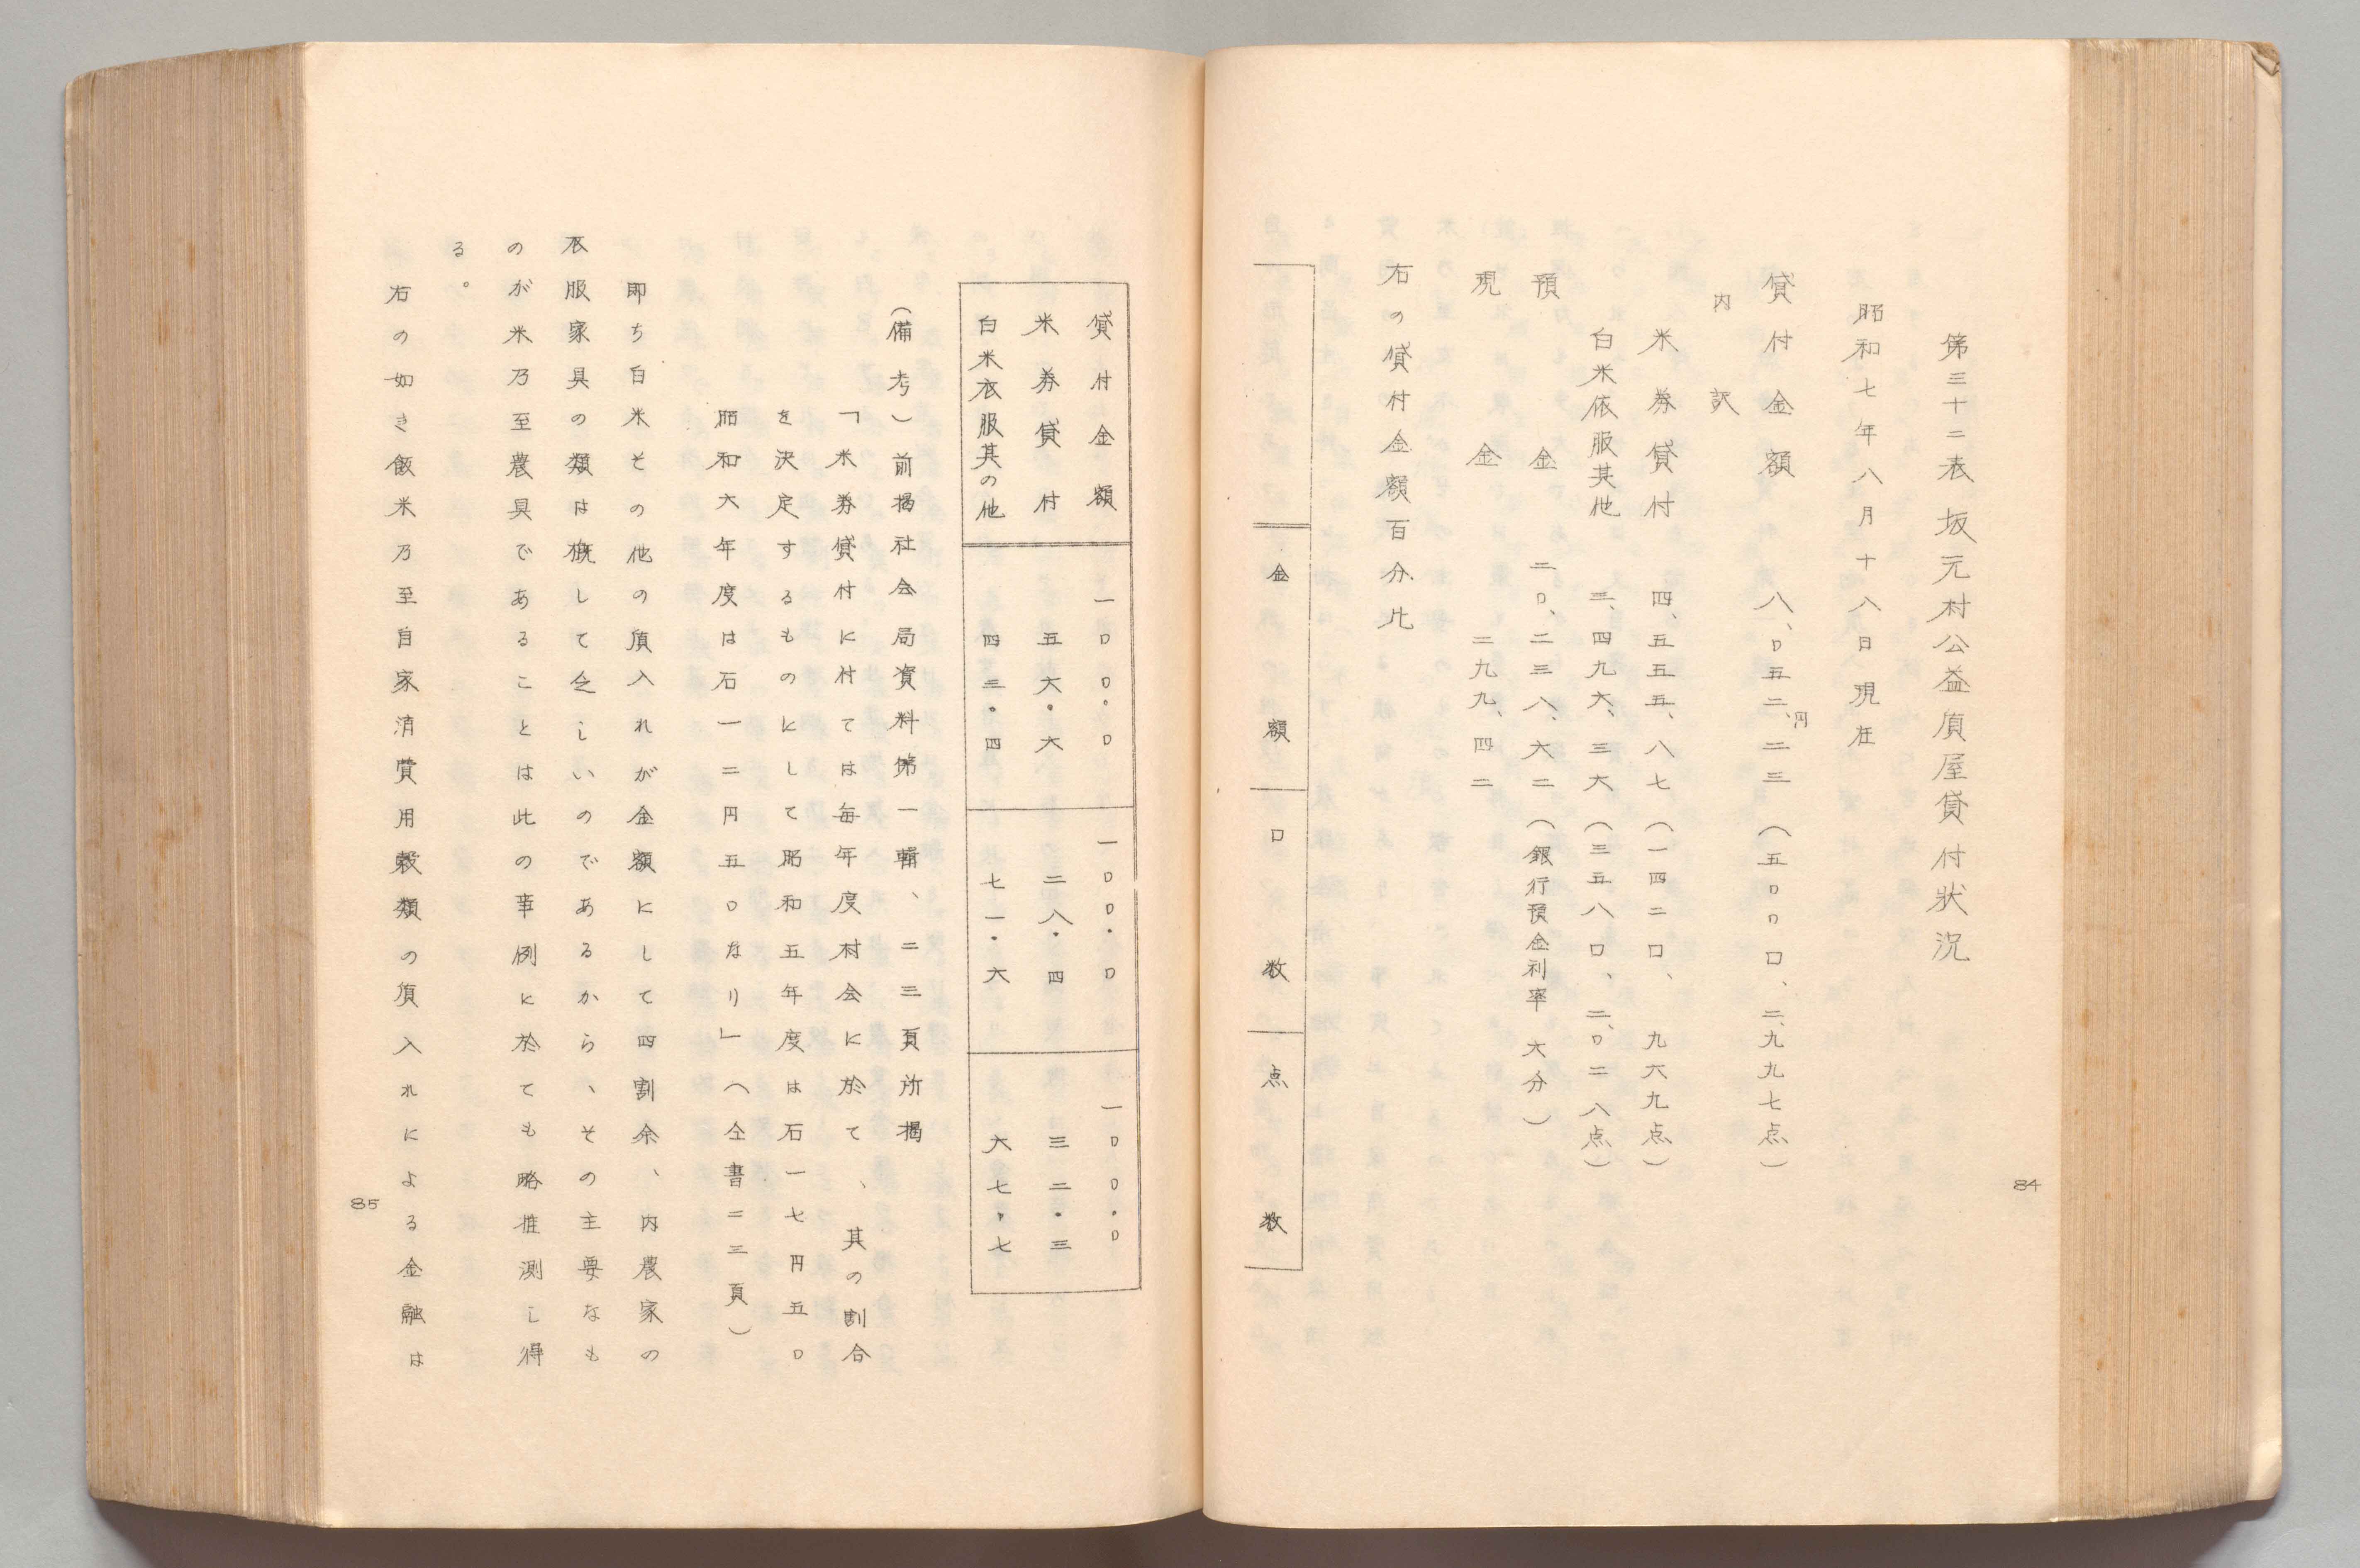 第三十二表 坂元村公益質屋貸付状況
昭和七年八月十八日現在
貸付金額 八、〇五二、二三円(五〇〇口、二、九九七点)
内訳
米券貸付 四、五五五、八七(一四二口、九六九点)
白米依服其他 三、四九六、三六(三五八口、二、〇二八点)
預金 二〇、二三八、六二(銀行預金利率 六分)
現金 二九九、四二
右の貸付金額百分比
金額 口数 点数
84
貸付金額 一〇〇.〇 一〇〇.〇 一〇〇.〇
米券貸付 五六.六 二八.四 三二.三
白米衣服其の他 四三.四 七一.六 六七.七
(備考)前掲社会局資料第一輯、二三頁所掲
「米券貸付に村ては毎年度村会に於て、其の割合
を決定するものにして昭和五年度は石一七円五〇
昭和六年度は石一二円五〇なり」(仝書二三頁)
即ち白米その他の質入れが金額にして四割余、内農家の
衣服家具の類は概して乏しいのであるから、その主要なも
のが米乃至農具であることは此の事例に於ても略推測し得
る。
右の如き飯米乃至自家消費用穀類の質入れによる金融は
85